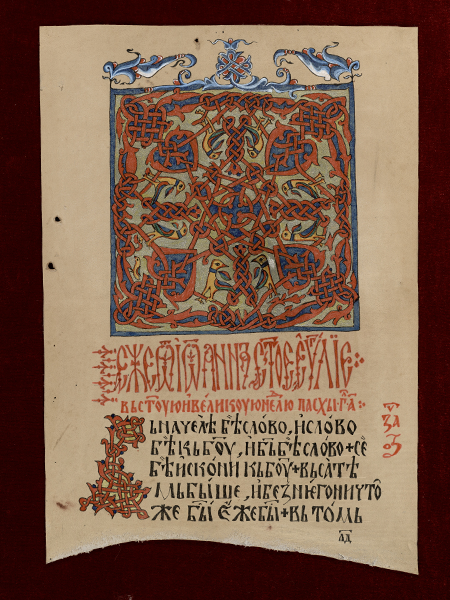 ЕЖЕ Ѿ ІѠАННА СТОЕ ЕѴЛІЕ :·
ВЬ СТОУЮ И ВЕЛИКОУЮ НЕЛЮ ПАСХЫ · ГЛА :·
ВЬ НАЧЕЛѢ БѢ СЛОВО, И СЛОВО
БѢ КЬ БОУ, И БЬ БѢ СЛОВО + СЕ
БѢ ИСКОНИ КЬ БОУ + ВЬСА ТѢ
МЬ БЫШЕ, И БЕЗ НИЕГО НИЧТО
ЖЕ БЫ ЕЖЕ БЫ + ВЬ ТОМЬ